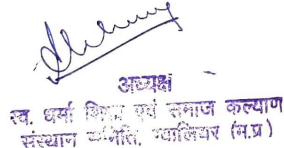 अध्यक्ष
स्व. धर्मा एवं समाज कल्याण
संस्थान समिति, ग्वालियर (म.प्र)